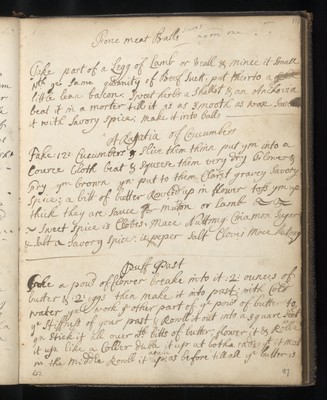 Force meat Balls
Take part of a Legg of Lamb or Veall & mince it Small
with ye same quantity of Beef suet, put thereto a
little lean bacon, Sweet herbs a shallot & an Anchovia
beat it in a morter till it is as smooth as wax
it with Savory Spice, make it into balls
A Regalia of Cucumbers
Take 12 Cucumbers & slice them thinn put ym into a
Course Cloth beat & Squeese them very dry flower &
fry ym brown yn put to them Claret gravey Savory
Spice, a bitt of butter Rowled up in flower toss ym up
thick they are Sauce for mutton or lamb
Sweet Spice is Cloves: Mace Nuttmeg Cinamon Sugar
& Salt Savory Spice: is peper Salt Cloves Mace Nutmeg
Puff Past
Take a pound of flower breake into it: 2: ounces of
butter & 2: eggs then make it into past with Cold
water yn work ye other part of ye pound of butter to
ye stiffness of your past; Rowll it out into a square sheet
yn stick it all over with bitts of butter, flower it & Rolle
it up like a Coller duble it up at both ends yt it meet
in the middle Rowll it again as before till all ye butter is
in
87